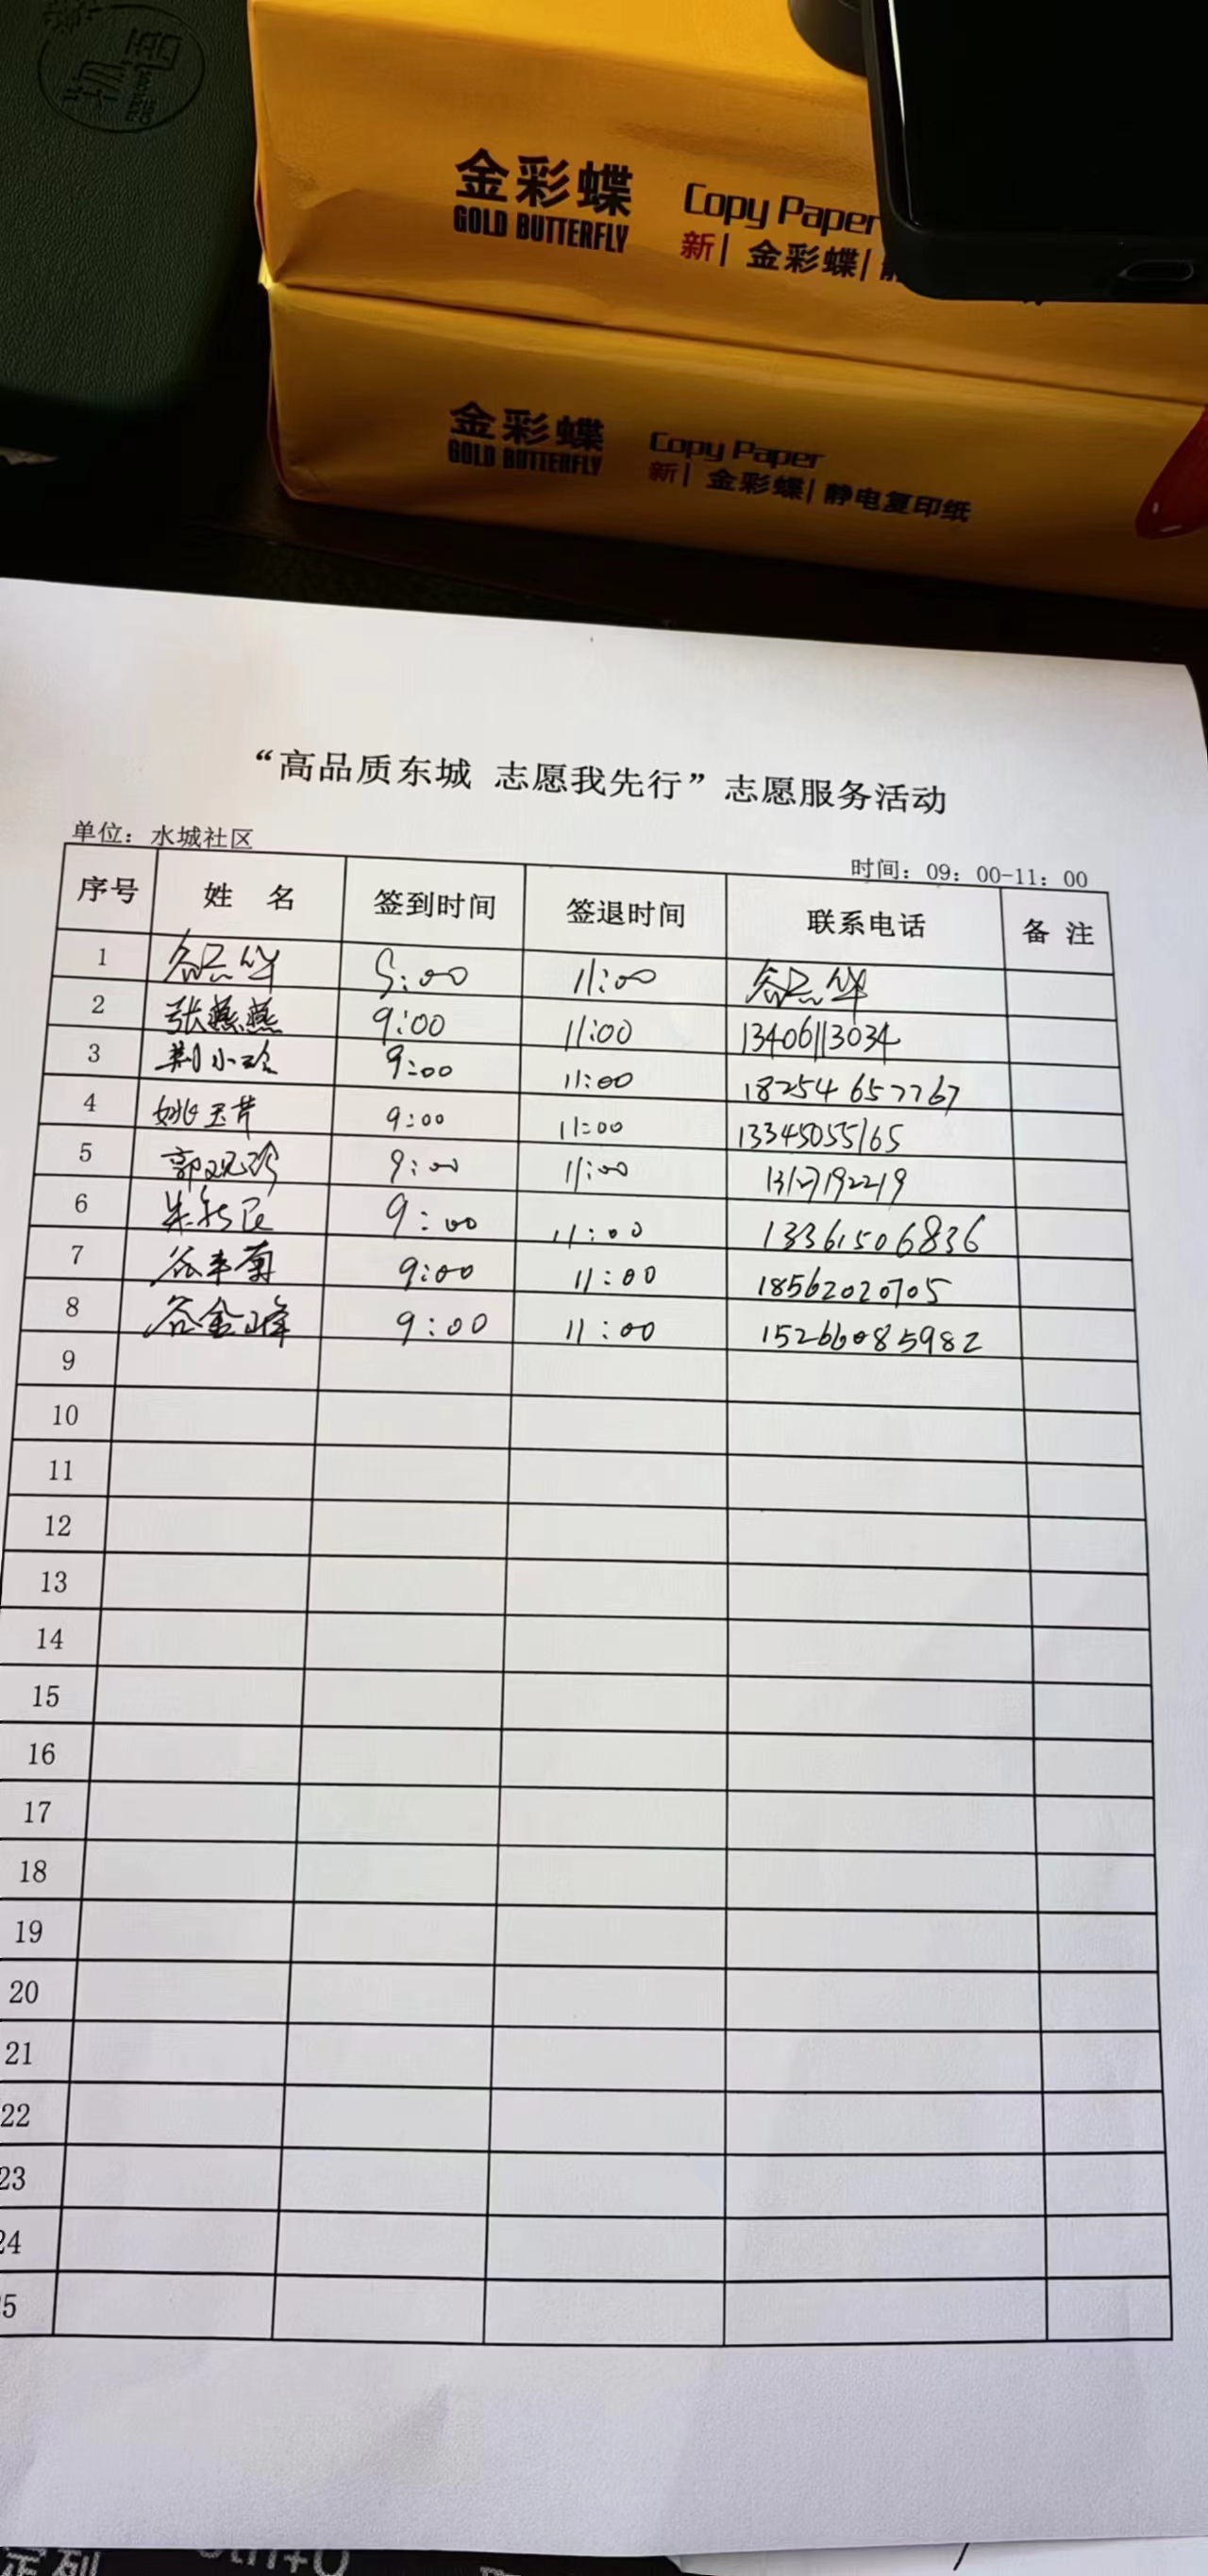 金彩蝶 Copy Paper
GOLD BUTTERFLY 新| 金彩蝶|
金彩蝶 Copy Paper
GOLD BUTTERFLY 新| 金彩蝶| 静电复印纸
“高品质东城 志愿我先行”志愿服务活动
单位：水城社区 时间：09：00-11：00
序号 姓 名 签到时间 签退时间 联系电话 备 注
1 11:00
2 张燕燕 9:00 11:00 13406113034
3 荆小玲 9:00 11:00 18254657767
4 姚玉芹 9:00 11:00 13345055165
5 郭观珍 9:00 11:00
6 朱新民 9:00 11:00 13361506836
7 谷丰菊 9:00 11:00 18562020705
8 谷金峰 9:00 11:00 15266085982
9
10
11
12
13
14
15
16
17
18
19
20
21
22
23
24
5